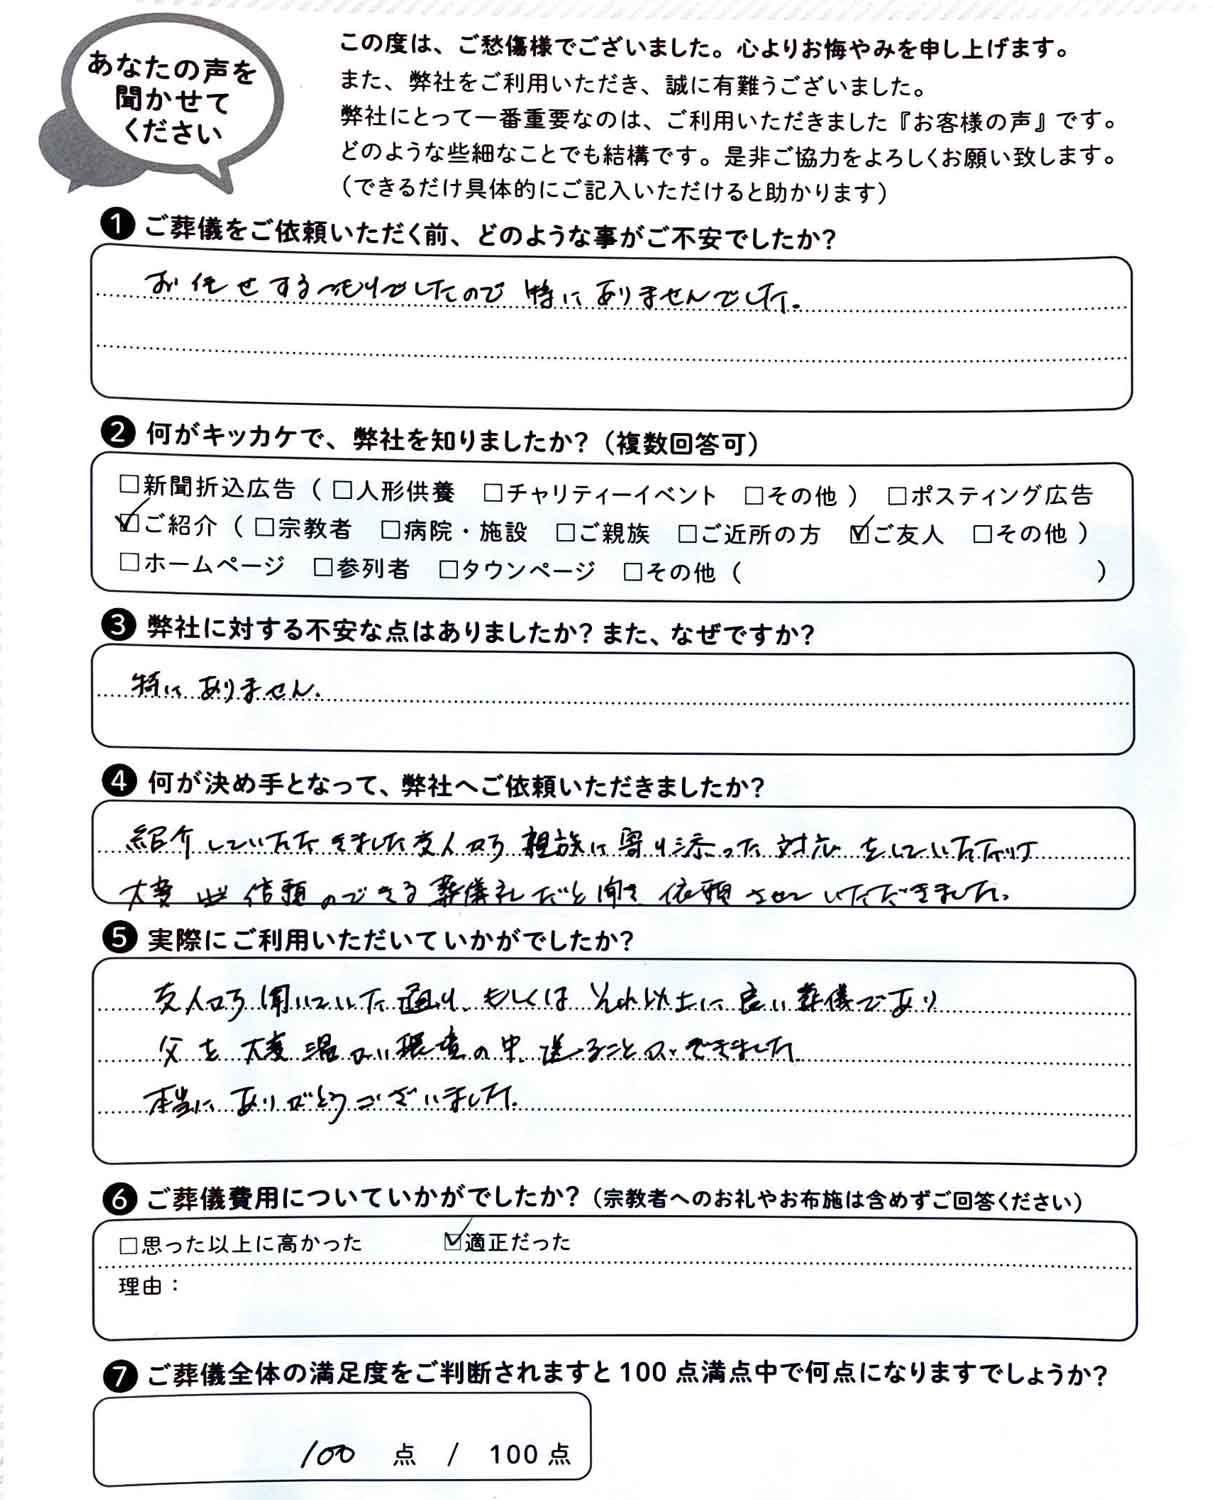 あなたの声を
聞かせて
ください
この度は、ご愁傷様でございました。心よりお悔やみを申し上げます。
また、弊社をご利用いただき、誠に有難うございました。
弊社にとって一番重要なのは、ご利用いただきました『お客様の声』です。
どのような些細なことでも結構です。是非ご協力をよろしくお願い致します。
（できるだけ具体的にご記入いただけると助かります）
❶ご葬儀をご依頼いただく前、どのような事がご不安でしたか？
お任せするつもりでしたので 特にありませんでした。
❷何がキッカケで、弊社を知りましたか？（複数回答可）
□新聞折込広告（□人形供養 □チャリティーイベント □その他） □ポスティング広告
☑ご紹介（□宗教者 □病院・施設 □ご親族 □ご近所の方 ☑ご友人 □その他）
□ホームページ □参列者 □タウンページ □その他（ ）
❸弊社に対する不安な点はありましたか？また、なぜですか？
特にありません。
❹何が決め手となって、弊社へご依頼いただきましたか？
紹介していただきました友人から 親族に寄り添った対応をしていただけ
大変 信頼のできる葬儀社だと聞き 依頼させていただきました。
❺実際にご利用いただいていかがでしたか？
友人から聞いていた通り、もしくは それ以上に良い葬儀であり
父を大変温かい環境の中、送ることができました。
本当にありがとうございました。
❻ご葬儀費用についていかがでしたか？（宗教者へのお礼やお布施は含めずご回答ください）
□思った以上に高かった ☑適正だった
理由：
❼ご葬儀全体の満足度をご判断されますと100点満点中で何点になりますでしょうか？
100 点 / 100点